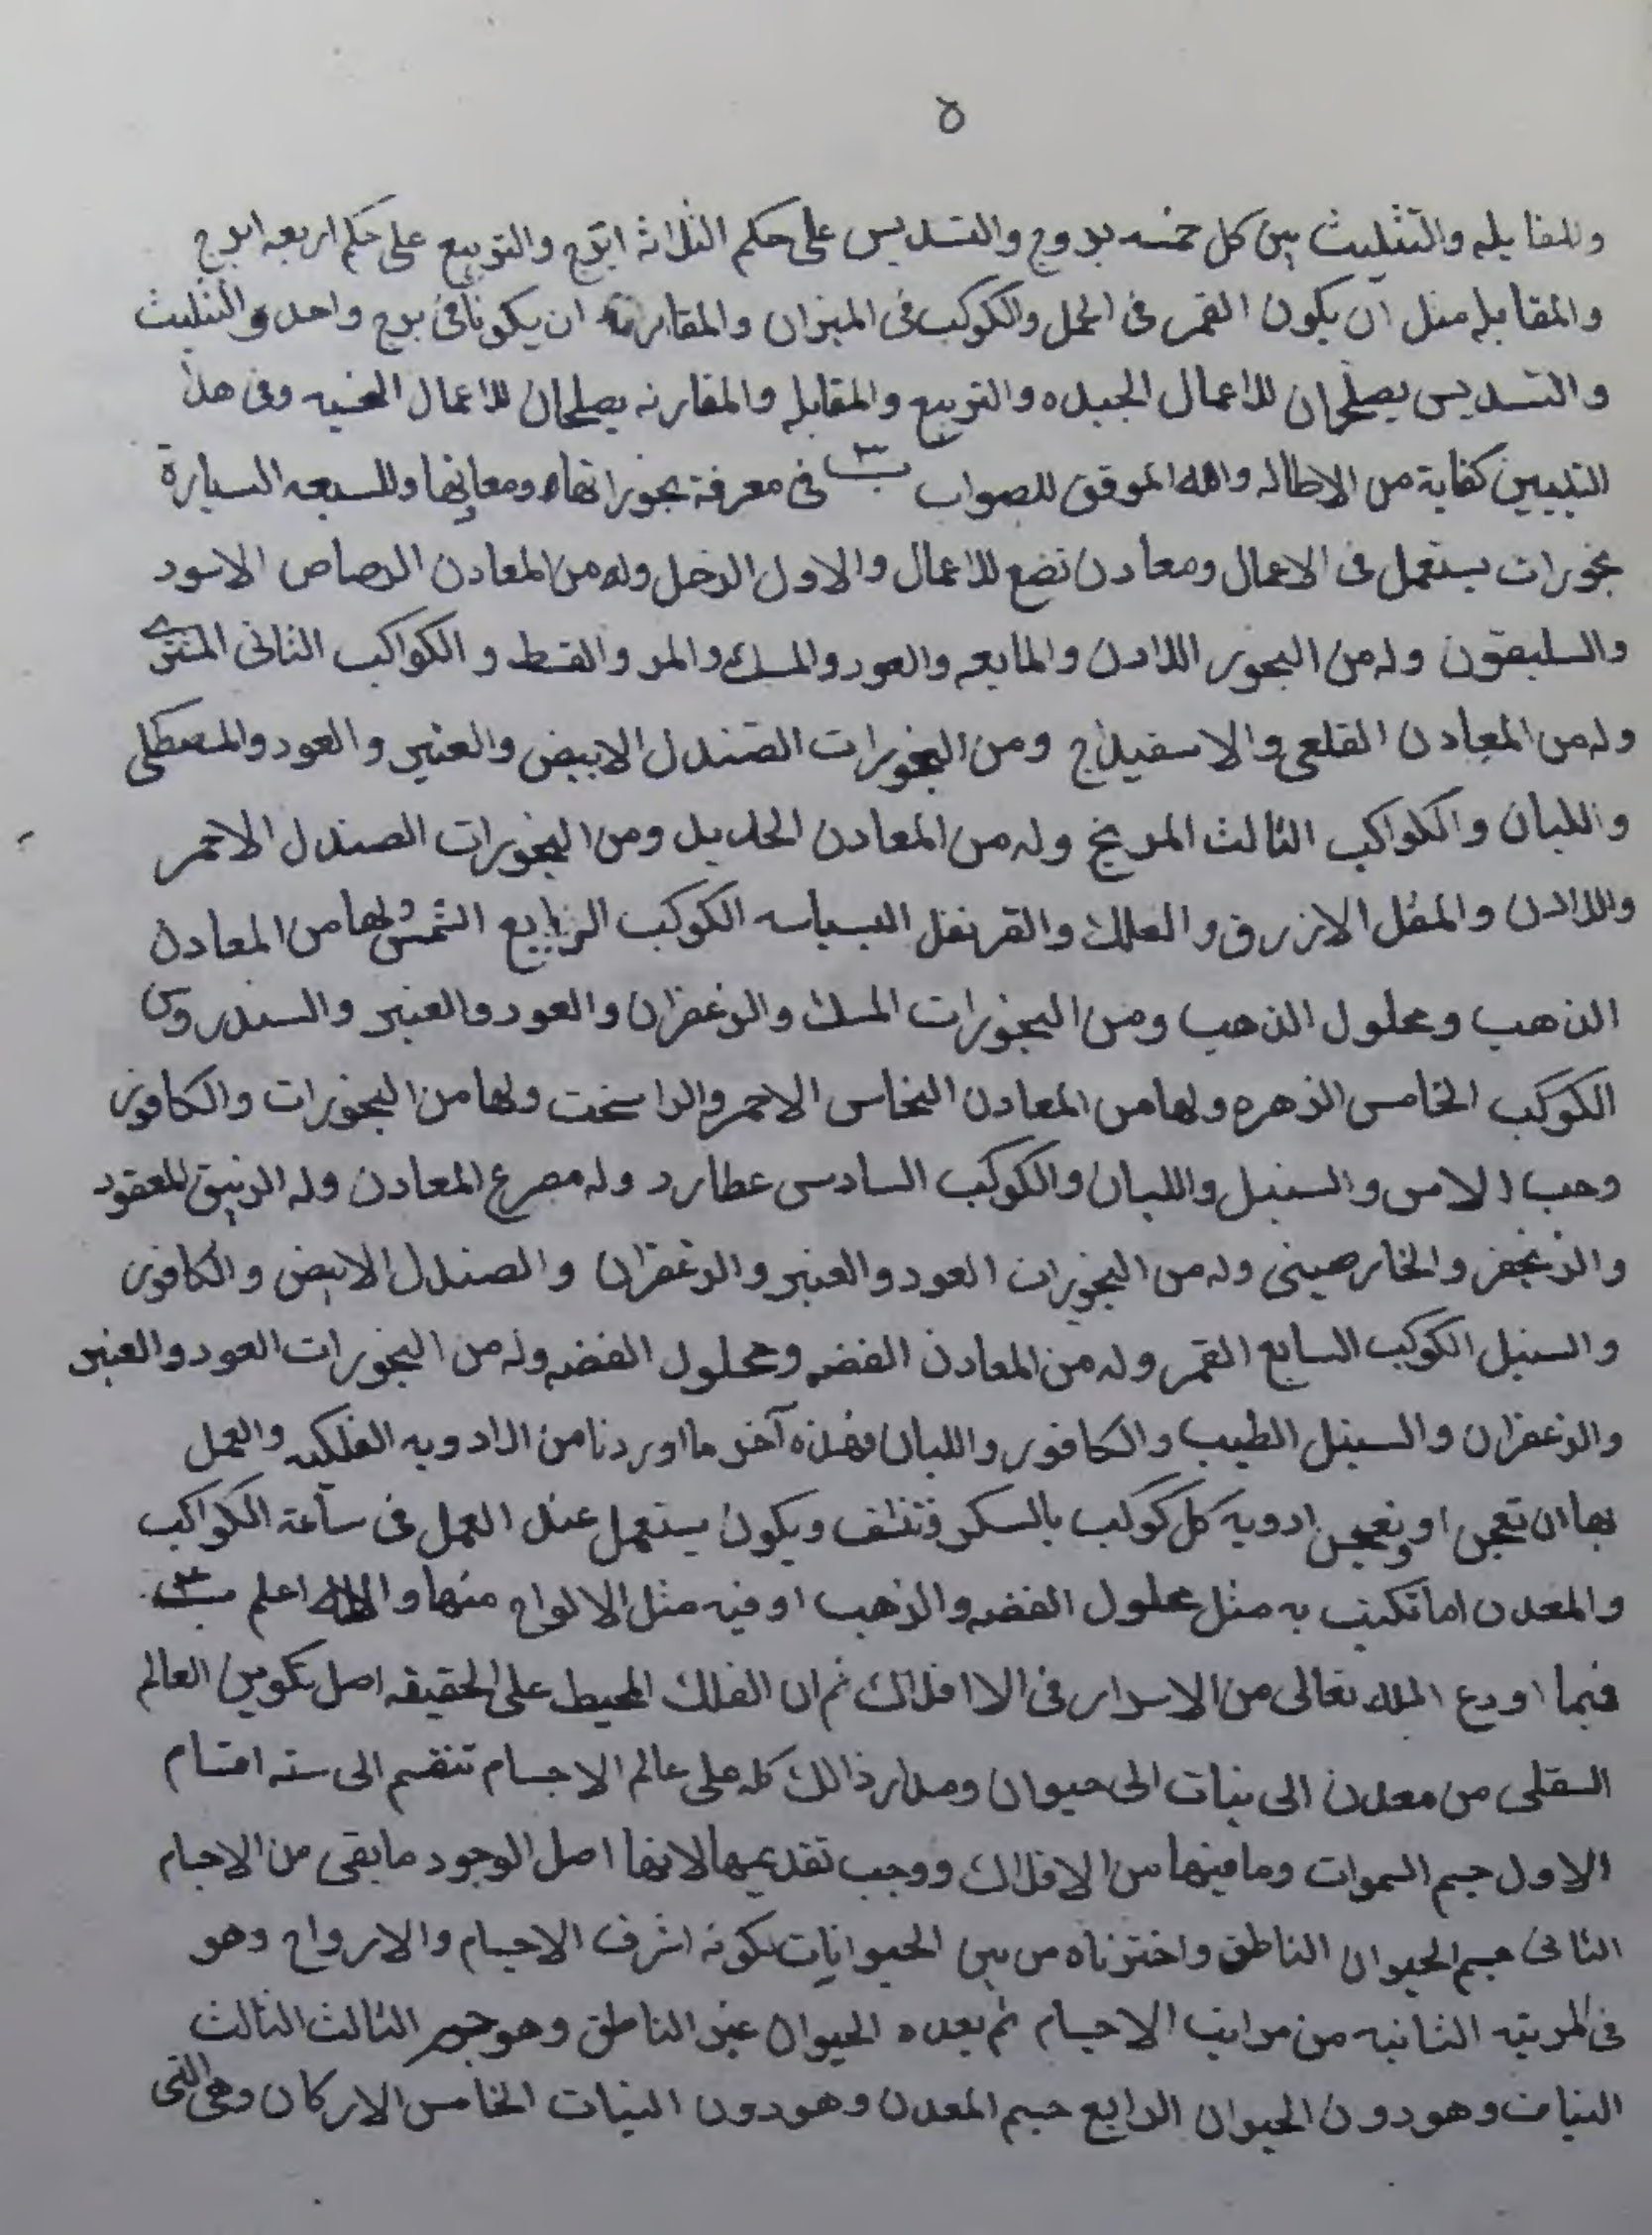 ٥
وللمقابله والتثليث بين كل خمسه بروج والتسديس على حكم الثلاثة ابروج والتربيع على حكم اربعه ابروج
والمقابله مثل ان يكون القمر فى الحمل والكوكب فى الميزان والمقارنة ان يكونا فى برج واحد والتثليث
والتسديس يصلحان للاعمال الجيده والتربيع والمقابله والمقارنه يصلحان للاعمال النحسيه وفى هذا
التبيين كفاية من الاطاله والله الموفق للصواب فى معرفة بخوراتها ومعانيها وللسبعه السيارة
بخورات يستعمل فى الاعمال ومعادن تضع للاعمال والاول الزحل وله من المعادن الرصاص الاسود
والسليقون وله من البخور اللادن والمايعه والعود والمسك والمر والقسط و الكواكب الثانى المشترى
وله من المعادن القلعى والاسفيداج ومن البخورات الصندل الابيض والعنبر والعود والمصطكى
واللبان والكواكب الثالث المريخ وله من المعادن الحديد ومن البخورات الصندل الاحمر
واللادن والمقل الازرق والعلك والقرنفل البسباسه الكوكب الرابع الشمس ولها من المعادن
الذهب ومحلول الذهب ومن البخورات المسك والزعفران والعود والعنبر والسندروس
الكوكب الخامس الزهره ولها من المعادن النحاس الاحمر والراسخت ولها من البخورات والكافور
وحب الاس والسنبل واللبان والكوكب السادس عطارد وله المعادن وله الزيبق المعقود
والزنجفر والخارصينى وله من البخورات العود والعنبر والزعفران والصندل الابيض والكافور
والسنبل الكوكب السابع القمر وله من المعادن الفضه ومحلول الفضه وله من البخورات العود والعنبر
والزعفران والسنبل الطيب والكافور واللبان فهذه آخر ما اوردنا من الادويه الفلكيه والعمل
بها ان تعجن او تعجن ادوية كل كوكب بالسكر وتنشف ويكون يستعمل عند العمل فى ساعة الكواكب
والمعدن اما تكتب به مثل محلول الفضه والذهب او فيه مثل الالواح منها والله اعلم
فيما اودع الله تعالى من الاسرار فى الافلاك ثم ان الفلك المحيط على الحقيقه اصل تكوين العالم
السفلى من معدن الى نبات الى حيوان ومدار ذالك كله على عالم الاجسام تنقسم الى سته اقسام
الاول جسم السموات وما فيها من الافلاك ووجب تقديمها لانها اصل الوجود ما بقى من الاجسام
الثانى جسم الحيوان الناطق واخترناه من بين الحيوانات لكونه اشرف الاجسام والارواح وهو
فى المرتبه الثانيه من مراتب الاجسام ثم بعده الحيوان غير الناطق وهو الثالث الثالث
النبات وهو دون الحيوان الرابع جسم المعدن وهو دون النبات الخامس الاركان وهى التى